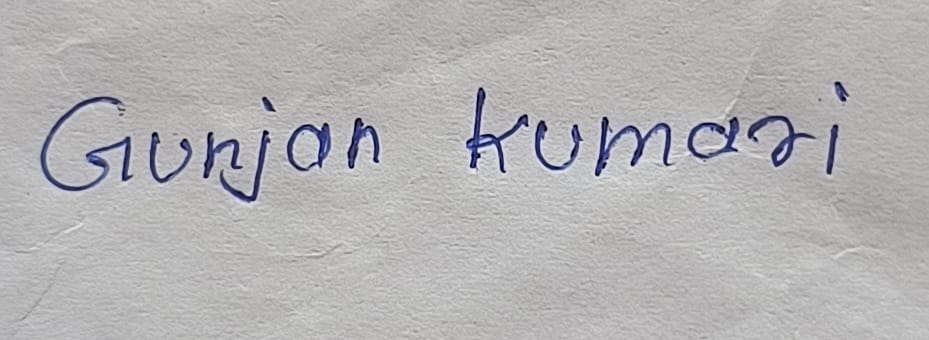 Gunjan kumari